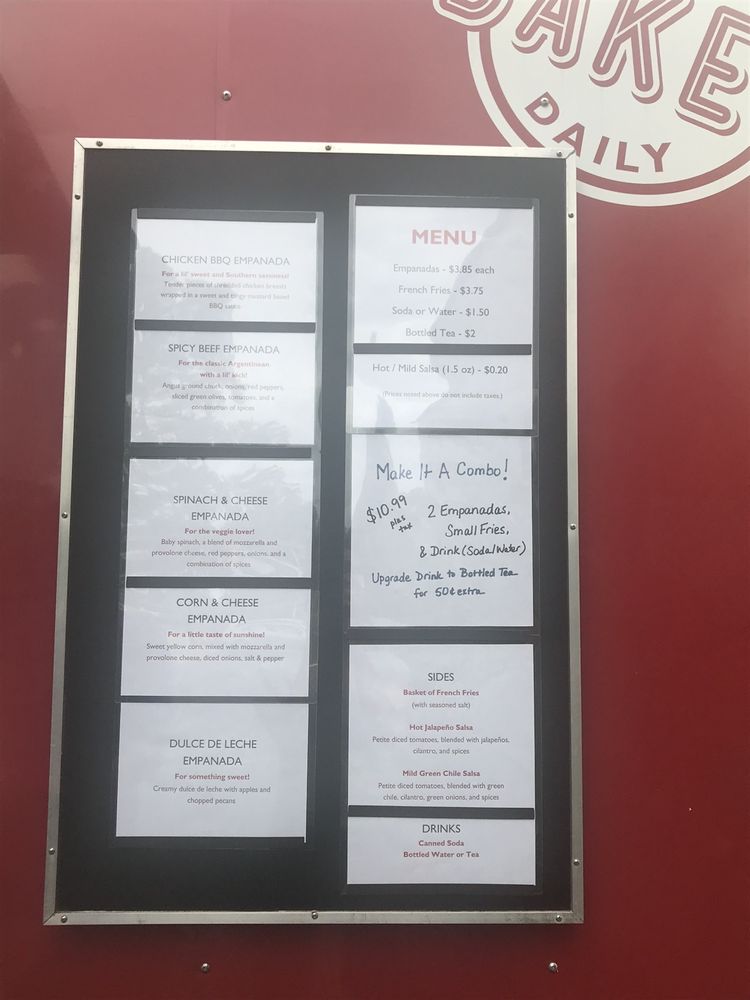 BAKE
DAILY
CHICKEN BBQ EMPANADA
For a lil' sweet and Southern sassiness!
Tender pieces of shredded chicken breasts
wrapped in a sweet and tangy mustard based
BBQ sauce
SPICY BEEF EMPANADA
For the classic Argentinean
with a lil' kick!
Angus ground chuck, onions, red peppers,
sliced green olives, tomatoes, and a
combination of spices
SPINACH & CHEESE
EMPANADA
For the veggie lover!
Baby spinach, a blend of mozzarella and
provolone cheese, red peppers, onions, and a
combination of spices
CORN & CHEESE
EMPANADA
For a little taste of sunshine!
Sweet yellow corn, mixed with mozzarella and
provolone cheese, diced onions, salt & pepper
DULCE DE LECHE
EMPANADA
For something sweet!
Creamy dulce de leche with apples and
chopped pecans
MENU
Empanadas - $3.85 each
French Fries - $3.75
Soda or Water - $1.50
Bottled Tea - $2
Hot / Mild Salsa (1.5 oz) - $0.20
(Prices noted above do not include taxes.)
Make It A Combo!
$10.99
plus
tax
2 Empanadas,
Small Fries,
& Drink (Soda/Water)
Upgrade Drink to Bottled Tea
for 50¢ extra
SIDES
Basket of French Fries
(with seasoned salt)
Hot Jalapeño Salsa
Petite diced tomatoes, blended with jalapeños,
cilantro, and spices
Mild Green Chile Salsa
Petite diced tomatoes, blended with green
chile, cilantro, green onions, and spices
DRINKS
Canned Soda
Bottled Water or Tea